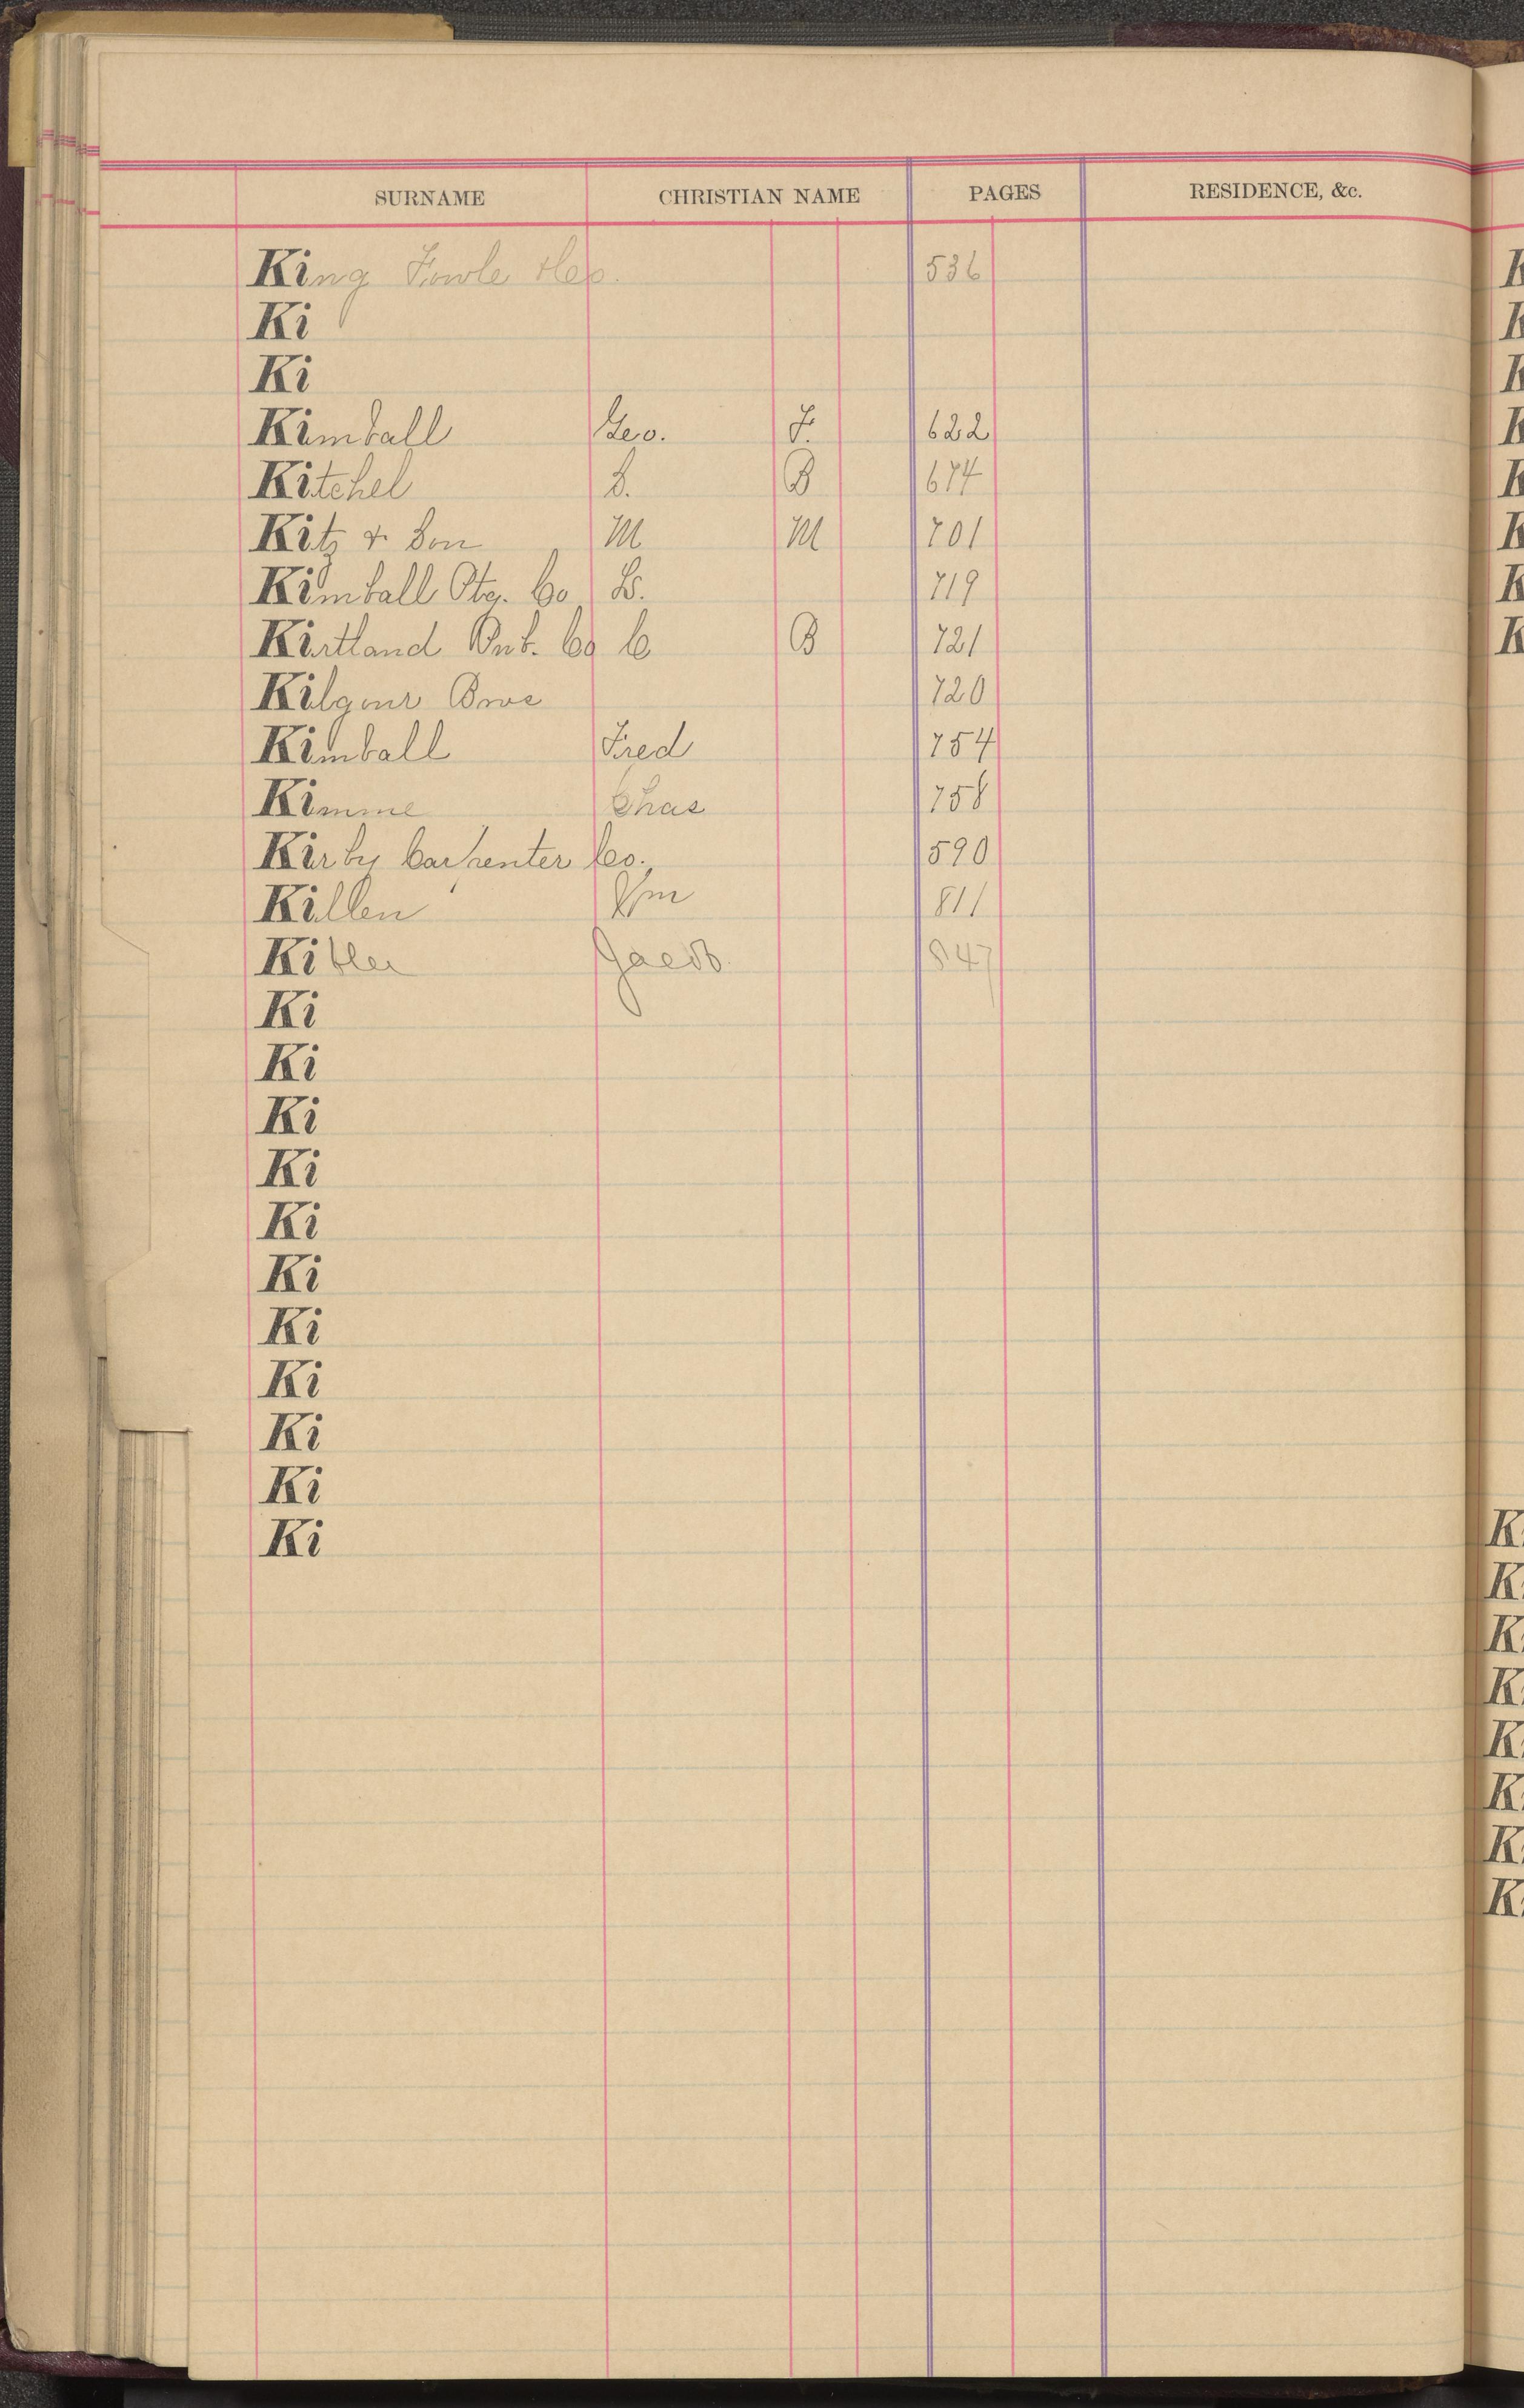 SURNAME CHRISTIAN NAME PAGES RESIDENCE, &c.
King Fowle 536
Ki
Ki
Kimball Geo. F. 622
Kitchel S. B 674
Kitz & Son M M 701
Kimball Co 719
Kirtland Co C B 721
Kilgour Bros 720
Kimball Fred 754
Kimme Chas 758
Kirby Carpenter Co. 590
Killen Wm 811
Kibler Jacob 847
Ki
Ki
Ki
Ki
Ki
Ki
Ki
Ki
Ki
Ki
Ki